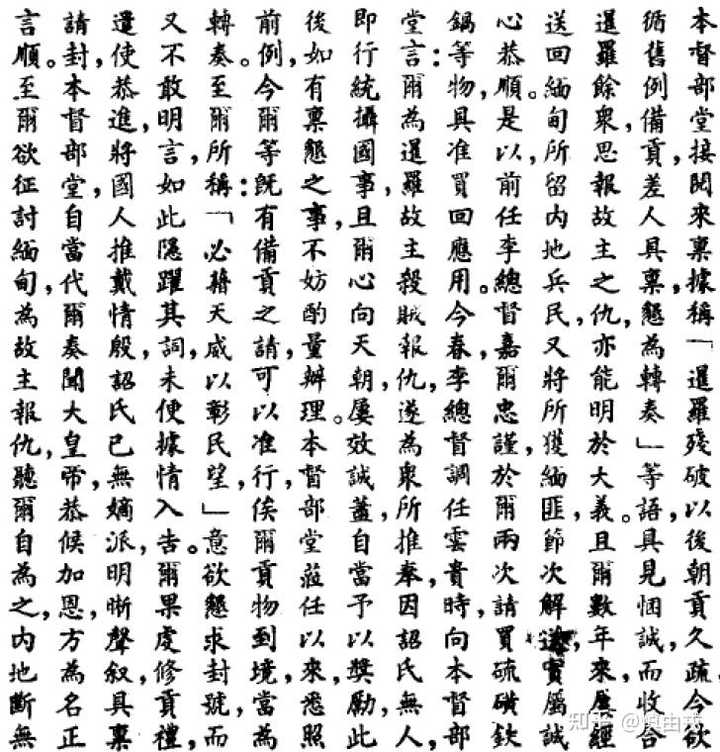 本督部堂,接閱來稟,據稱「暹羅殘破,以後朝貢久疏,今欲
循舊例備貢,差人具稟,懇為轉奏」等語。具見悃誠,而收合
暹羅餘衆,思報故主之仇,亦能明於大義。且爾數年來,屢經
送回緬甸所留內地兵民,又將所獲緬匪,節次解送,實屬誠
心恭順。是以前任李總督,嘉爾忠謹,於爾兩次請買硫磺欽
鍋等物,具准買回應用。今春,李總督調任雲貴時,向本督部
堂言:爾為暹羅故主殺賊報仇,遂為衆所推奉,因詔氏無人,
即行統攝國事,且爾心向天朝,屢效誠藎,自當予以獎勵,此
後如有稟懇之事,不妨酌量辦理。本督部堂蒞任以來,悉照
前例,今爾等既有備貢之請,可以准行,俟爾貢物到境,當為
轉奏。至爾所稱:「必藉天威以彰民望,」意欲懇求封號,而
又不敢明言,如此隱躍其詞,未便據情入告。爾果虔修貢禮,
遣使恭進,將國人推戴情殷,詔氏已無嫡派,明晰聲叙,具稟
請封,本督部堂,自當代爾奏聞大皇帝,恭候加恩,方為名正
言順。至爾欲征討緬甸,為故主報仇,聽爾自為之,內地斷無
知乎